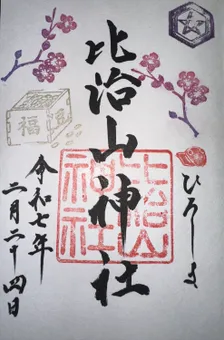 比治山神社
ひろしま
比治山神社
令和七年
二月二十四日
福